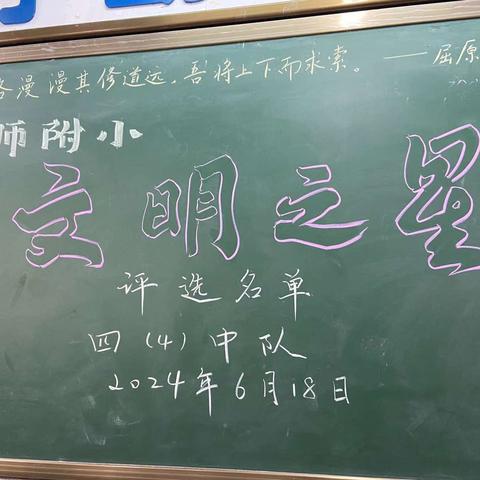 路漫漫其修道远,吾将上下而求索。——屈原
师附小
文明之星
评选名单
四(4)中队
2024年6月18日